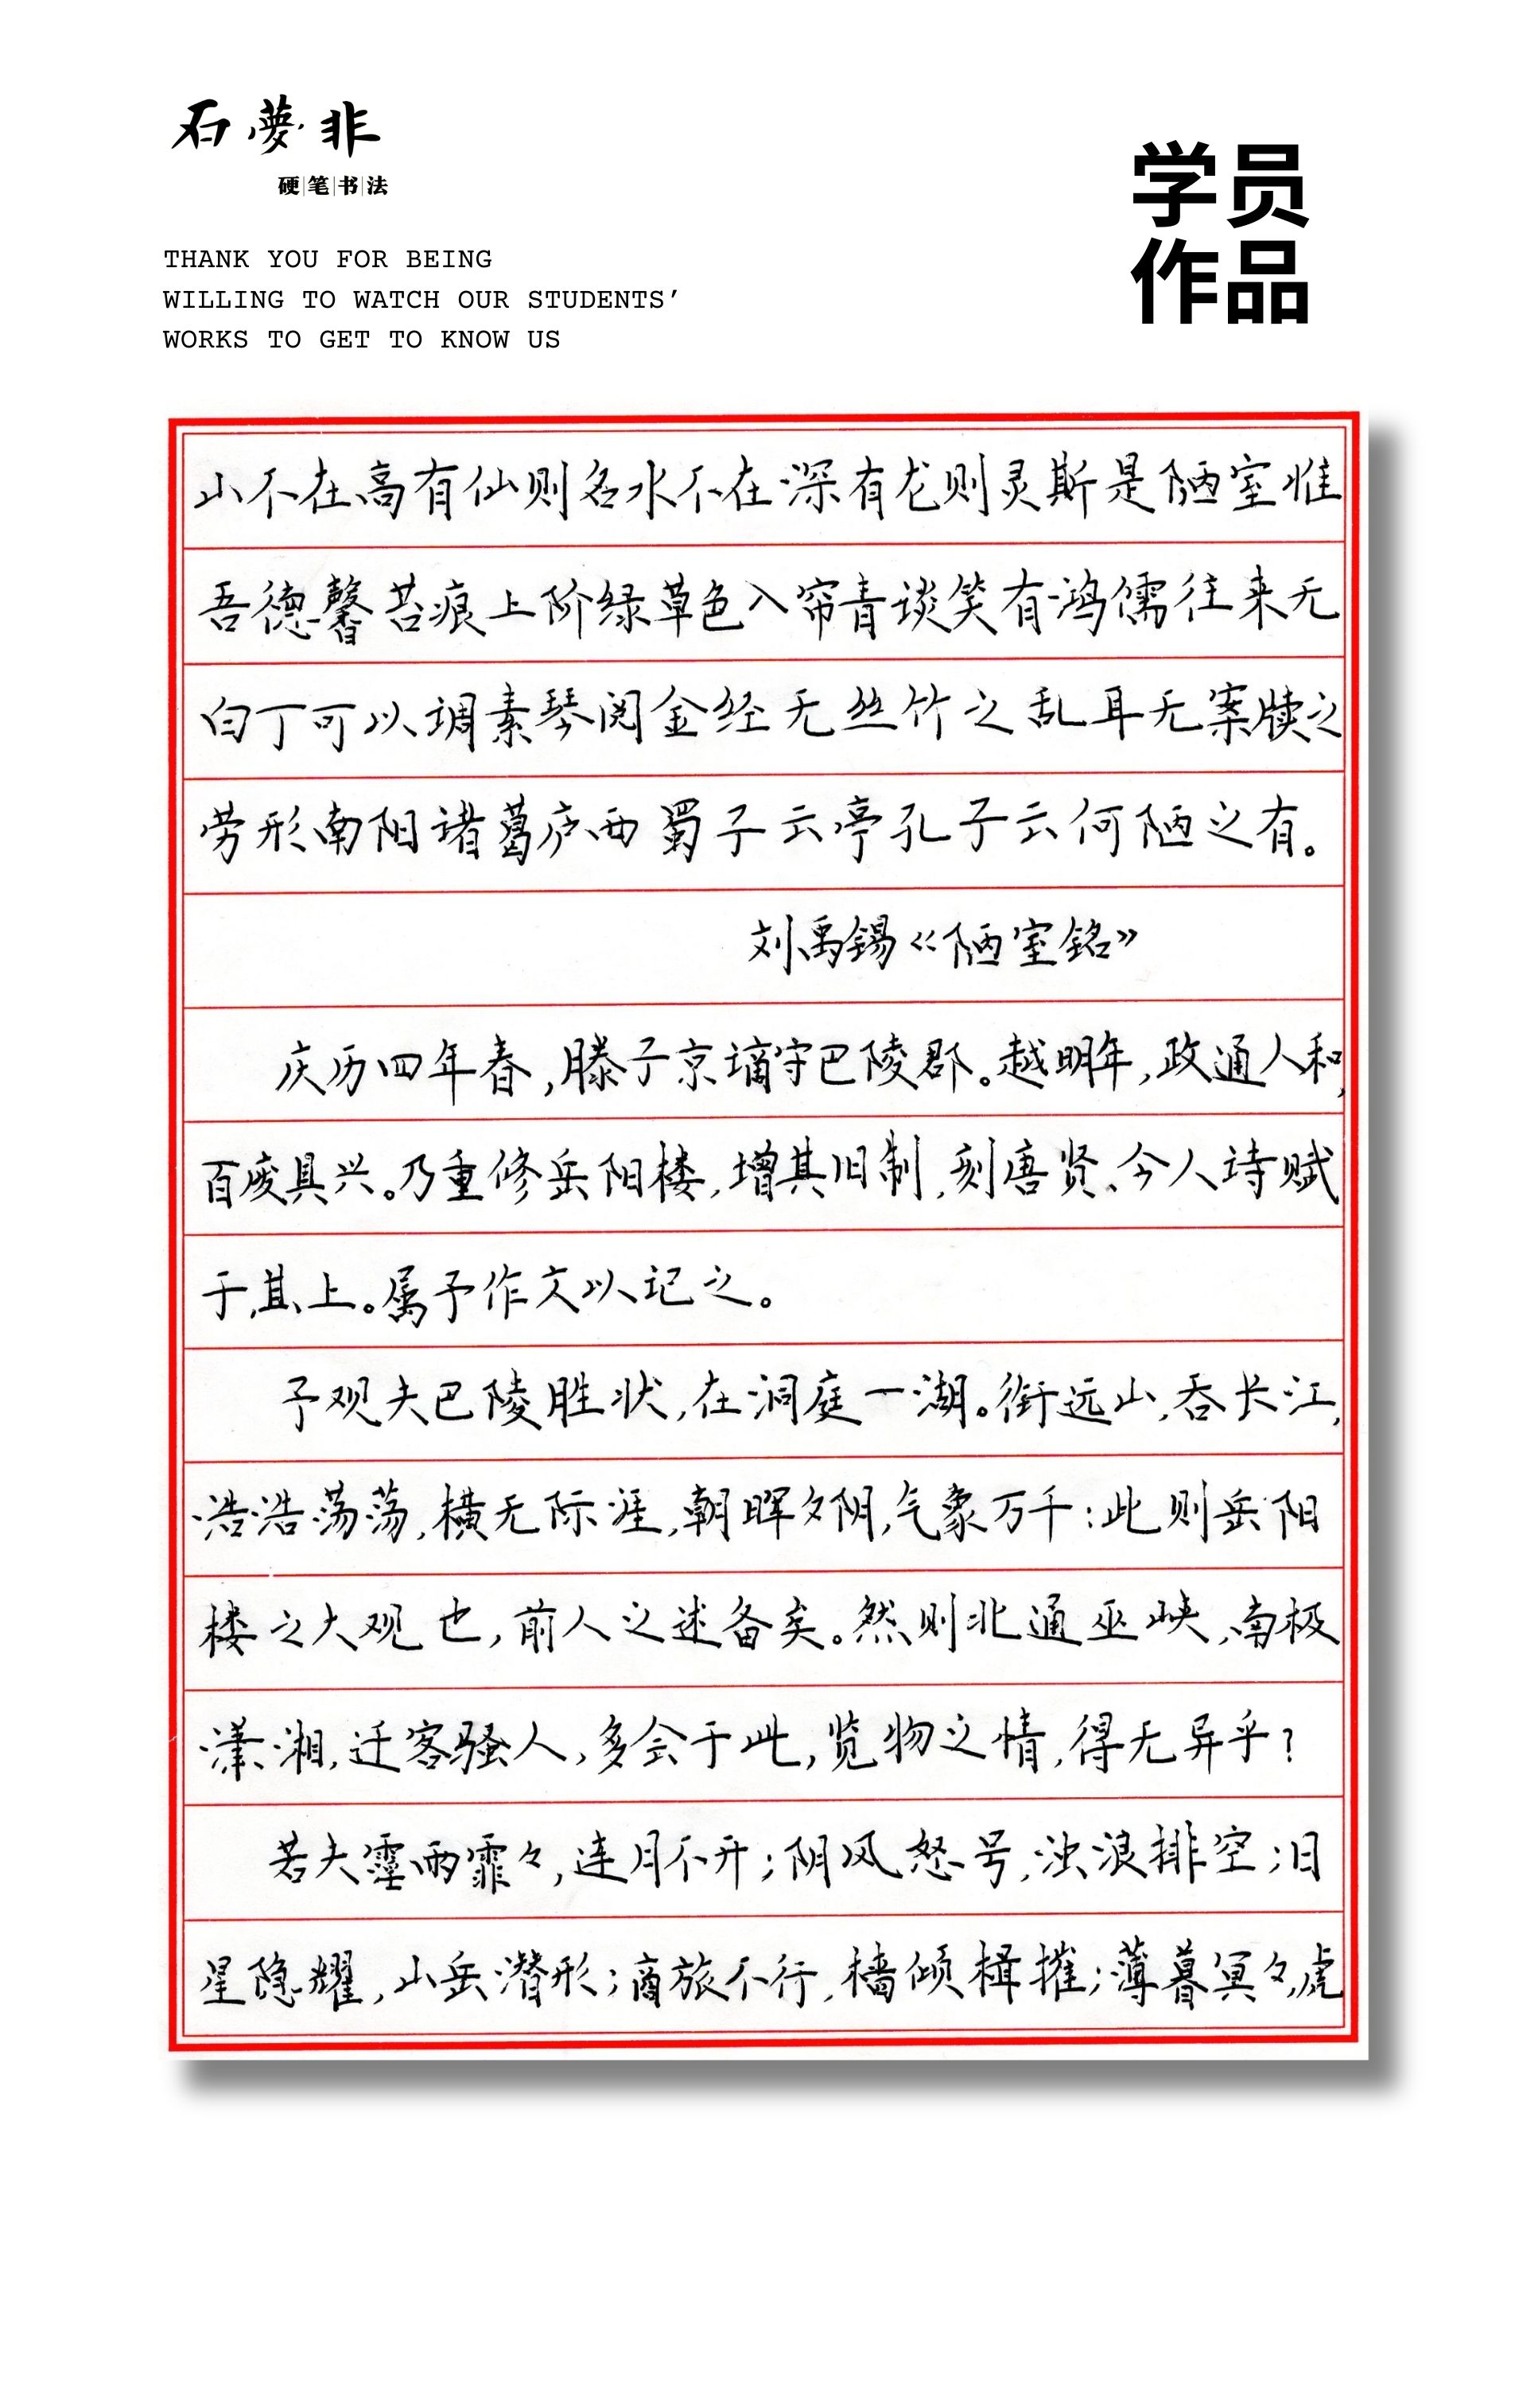 石夢非
硬笔书法
THANK YOU FOR BEING
WILLING TO WATCH OUR STUDENTS'
WORKS TO GET TO KNOW US
学员
作品
山不在高有仙则名水不在深有龙则灵斯是陋室惟
吾德馨苔痕上阶绿草色入帘青谈笑有鸿儒往来无
白丁可以调素琴阅金经无丝竹之乱耳无案牍之
劳形南阳诸葛庐西蜀子云亭孔子云何陋之有。
刘禹锡《陋室铭》
庆历四年春,滕子京谪守巴陵郡。越明年,政通人和,
百废具兴。乃重修岳阳楼,增其旧制,刻唐贤、今人诗赋
于其上。属予作文以记之。
予观夫巴陵胜状,在洞庭一湖。衔远山,吞长江,
浩浩荡荡,横无际涯,朝晖夕阴,气象万千:此则岳阳
楼之大观也,前人之述备矣。然则北通巫峡,南极
潇湘,迁客骚人,多会于此,览物之情,得无异乎?
若夫霪雨霏々,连月不开;阴风怒号,浊浪排空;日
星隐耀,山岳潜形;商旅不行,樯倾楫摧;薄暮冥々,虎